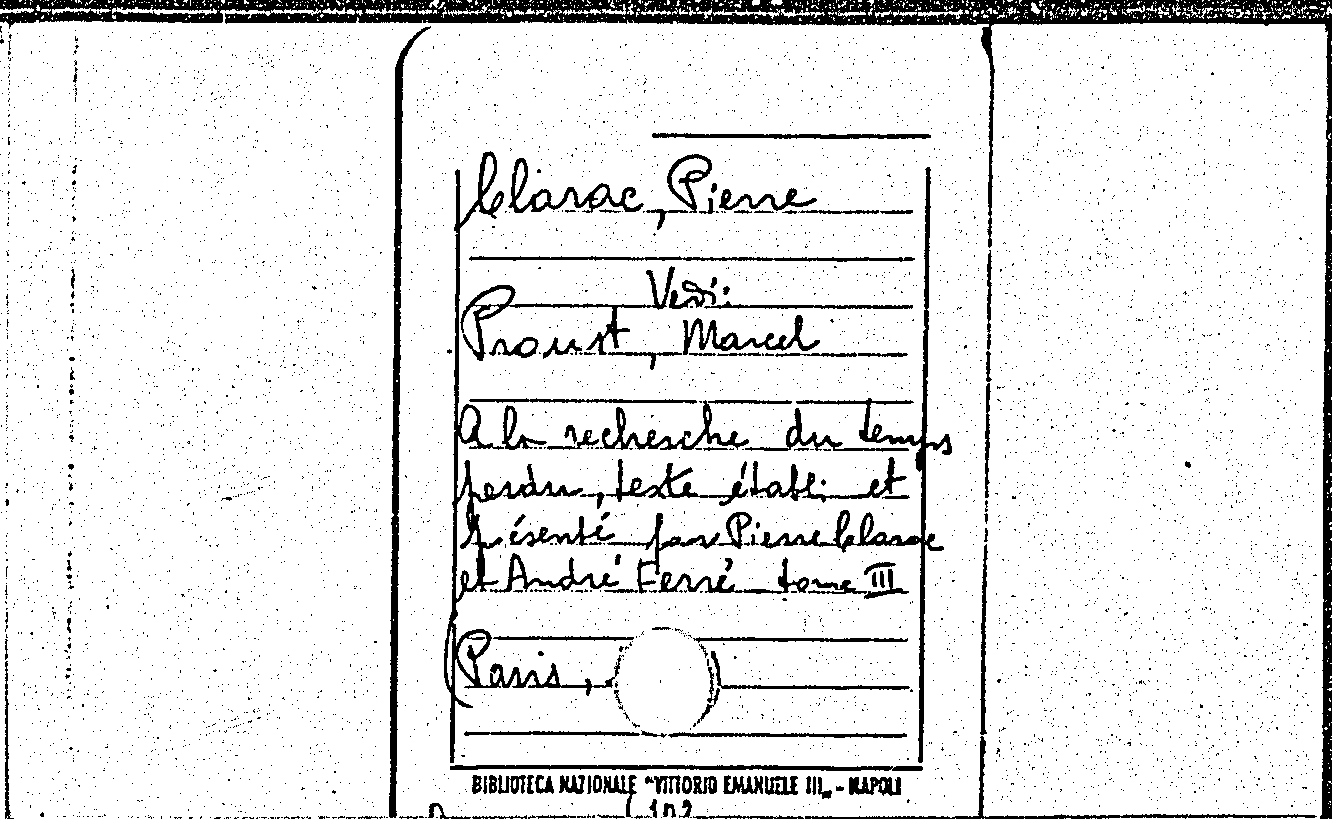 Clarac, Pierre
Vedi:
Proust, Marcel
A la recherche du temps
perdu, texte établi et
présenté par Pierre Clarac
et André Ferré tome III
(Paris,
BIBLIOTECA NAZIONALE "VITTORIO EMANUELE III„ - NAPOLI